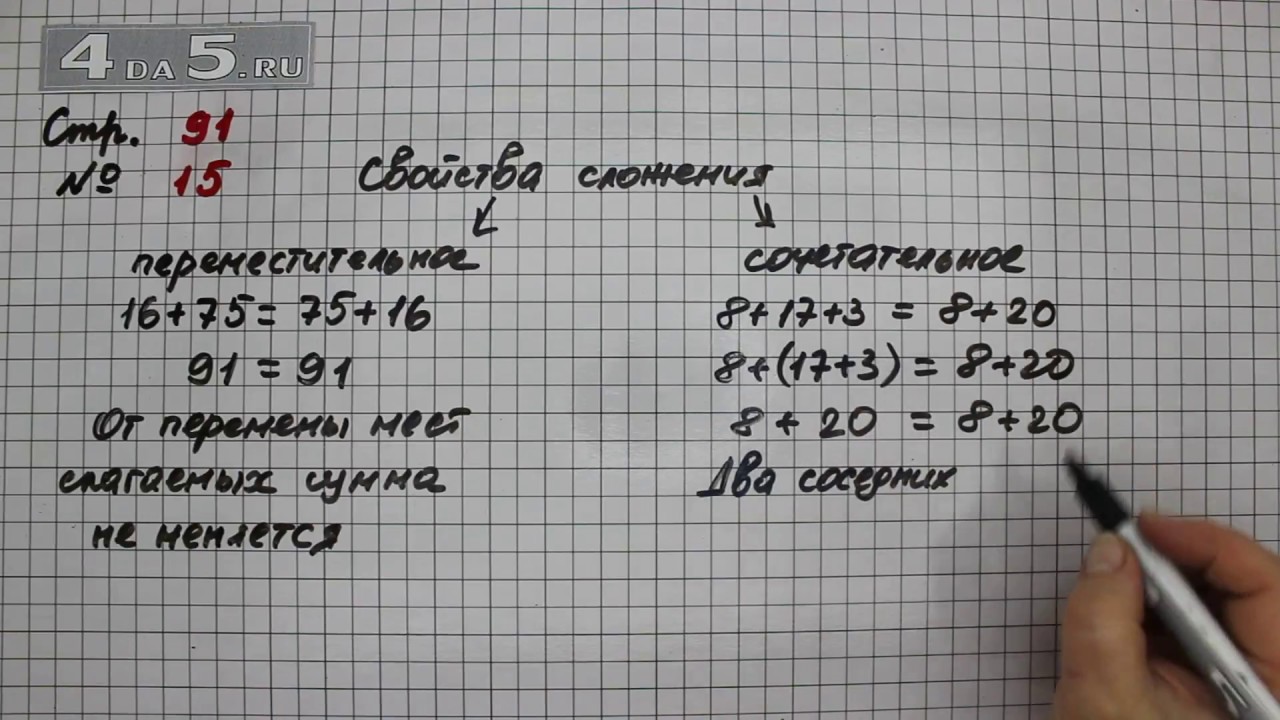 4DA5.RU
Стр. 91
№ 15
Свойства сложения
переместительное
16+75=75+16
91=91
От перемены мест
слагаемых сумма
не меняется
сочетательное
8+17+3=8+20
8+(17+3)=8+20
8+20=8+20
Два соседних